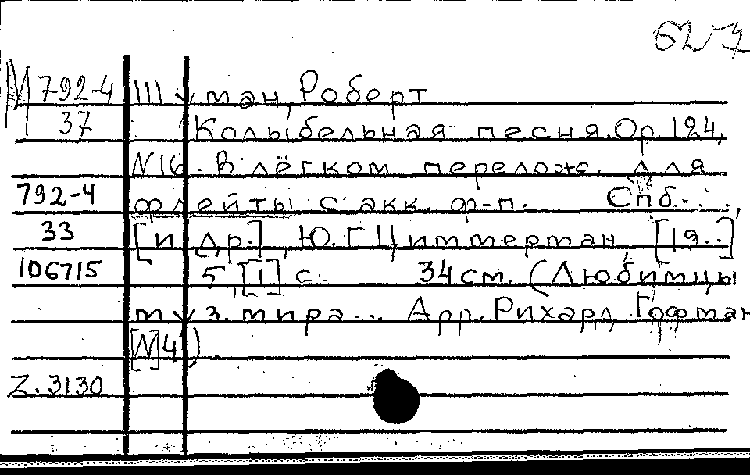 М 792-4 Шуман, Роберт
37 Колыбельная песня. Op. 124,
N16. В лёгком перелож. для
792-4 флейты с акк. ф-п. Спб.,
33 [и др.], Ю.Г. Циммерман, [19..]
106715 5, [1] с. 34 см. (Любимцы
муз. мира... Арр. Рихард Гофман
[N]4)
Z. 3130